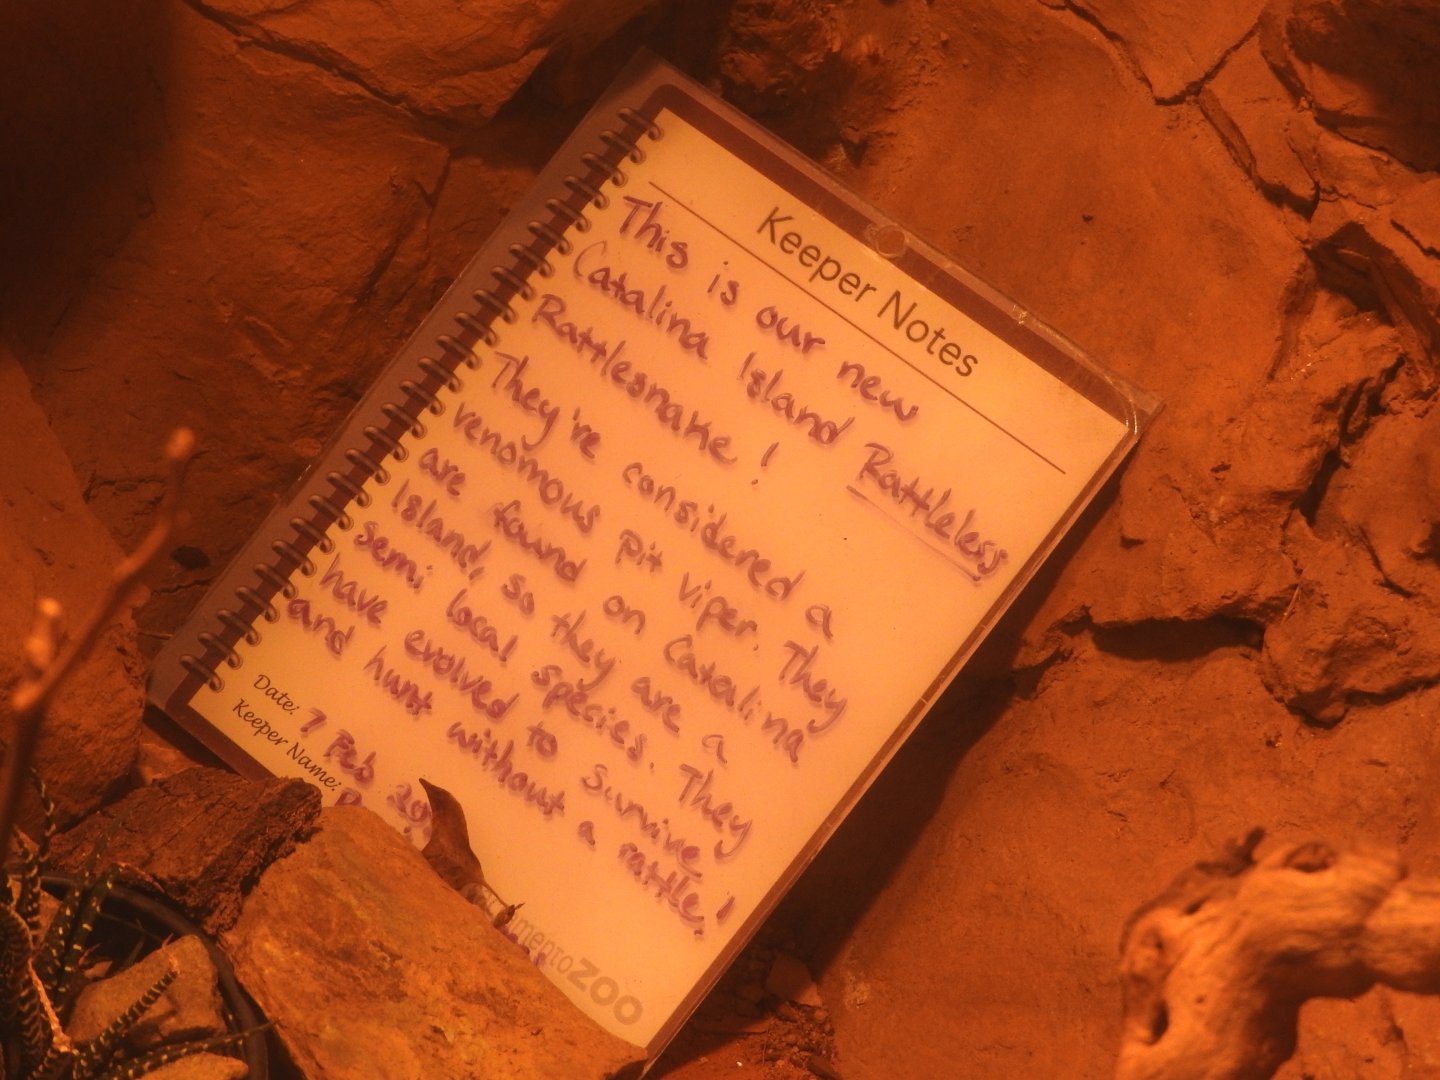 Keeper Notes
This is our new
Catalina Island Rattleless
Rattlesnake!
They're considered a
venomous pit viper. They
are found on Catalina
Island, so they are a
semi local species. They
have evolved to survive
and hunt without a rattle!
Date: 7 Feb
Keeper Name:
ZOO